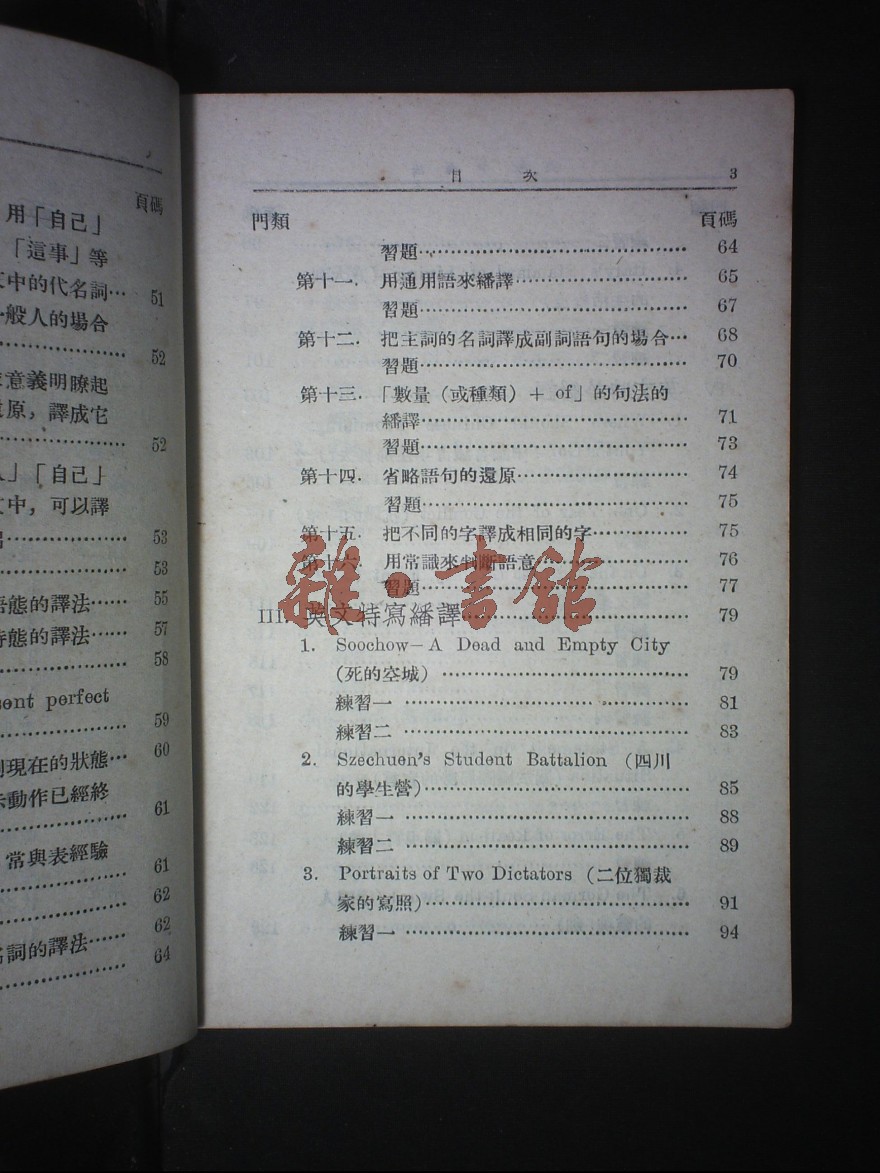 頁碼
用「自己」
「這事」等
中的代名詞… 51
般人的場合
52
意義明瞭起
原，譯成它
52
」「自己」
文中，可以譯
53
53
態的譯法…… 55
態的譯法…… 57
58
ent perfect
59
現在的狀態… 60
示動作已經終
61
常與表經驗
61
62
名詞的譯法…… 62
64
目 次 3
門類 頁碼
習題…… 64
第十一．用通用語來繙譯…… 65
習題…… 67
第十二．把主詞的名詞譯成副詞語句的場合… 68
習題…… 70
第十三．「數量（或種類）+ of」的句法的
繙譯…… 71
習題…… 73
第十四．省略語句的還原…… 74
習題…… 75
第十五．把不同的字譯成相同的字…… 75
第十六．用常識來判斷語意…… 76
習題…… 77
III．英文特寫繙譯…… 79
1. Soochow—A Dead and Empty City
(死的空城) …… 79
練習一 …… 81
練習二 …… 83
2. Szechuen's Student Battalion (四川
的學生營)…… 85
練習一 …… 88
練習二 …… 89
3. Portraits of Two Dictators (二位獨裁
家的寫照)…… 91
練習一 …… 94
雜·書館